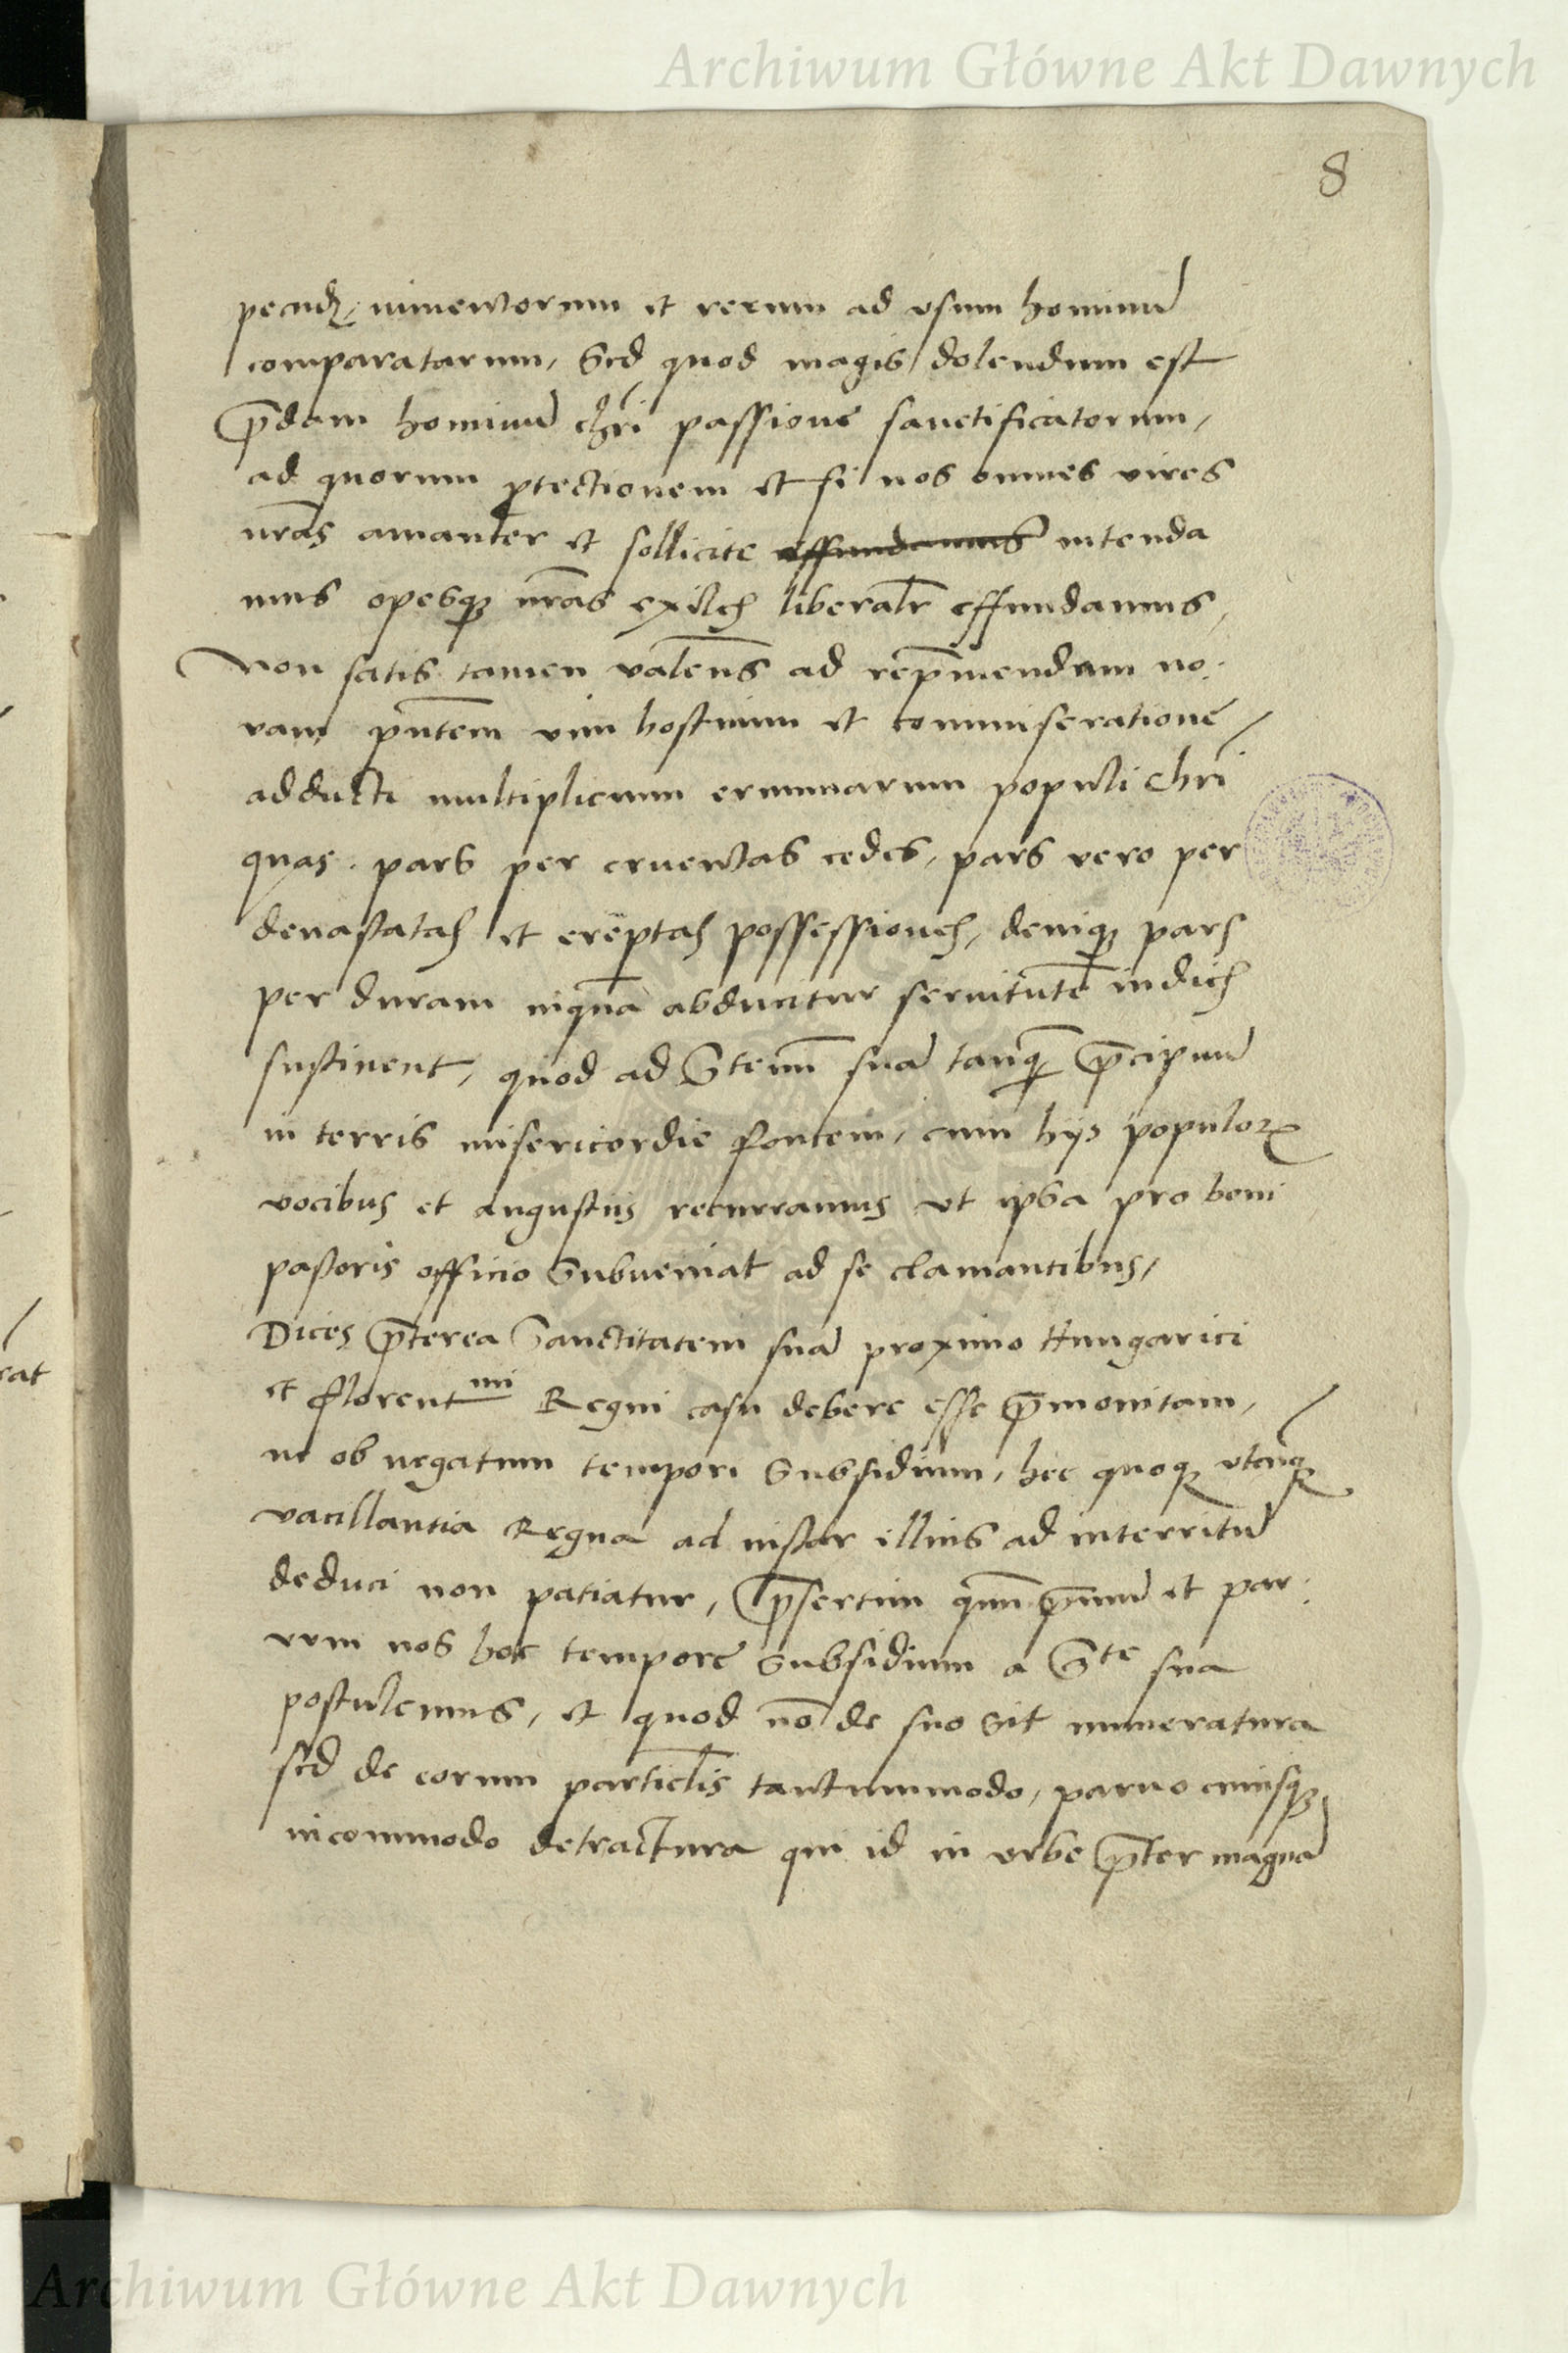 Archiwum Główne Akt Dawnych
8
pecudꝝ, iumentorum et rerum ad vsum hominū
comparatarum, Sed quod magis dolendum est
p̄dam hominū chr̄i passione sanctificatorum,
ad quorum ꝓtectionem et si nos omnes vires
nr̄as amanter et sollicite effundamus intenda
mus opesqꝫ nr̄as exiles liberalr̄ effundamus,
Non satis tamen valen̄s ad rep̄mendam no:
vam p̄ntem vim hostium et commiseratione
adducti multiplicium erumnarum populi chr̄i
quas pars per cruentas cedes, pars vero per
deuastatas et ereptas possessiones, deniqꝫ pars
per duram in quā abducitur seruitutē indies
sustinent, quod ad Stem̄ suā tanqꝫ p̄cipuū
in terris misericordie fontem, cum hijs populoꝝ
vocibus et angustijs recurramus vt ipsa pro boni
pastoris officio Subueniat ad se clamantibus,
Dices p̄terea Sanctitatem suā proximo Hungarici
et florent^mi Regni casu debere esse p̄monitam,
ne ob negatum tempori Subsidium, hec quoqꝫ vtcūqꝫ
vacillantia Regna ad instar illius ad interritū
deduci non patiatur, p̄sertim qum̄ p̄mū et par:
uum nos hoc tempore subsidium a S^te sua
postulemus, et quod nō de suo sit numeratura
sed de eorum particl̄is tantummodo, paruo cuiusqꝫ
incommodo detractura qui id in orbe p̄ter magnā
Archiwum Główne Akt Dawnych